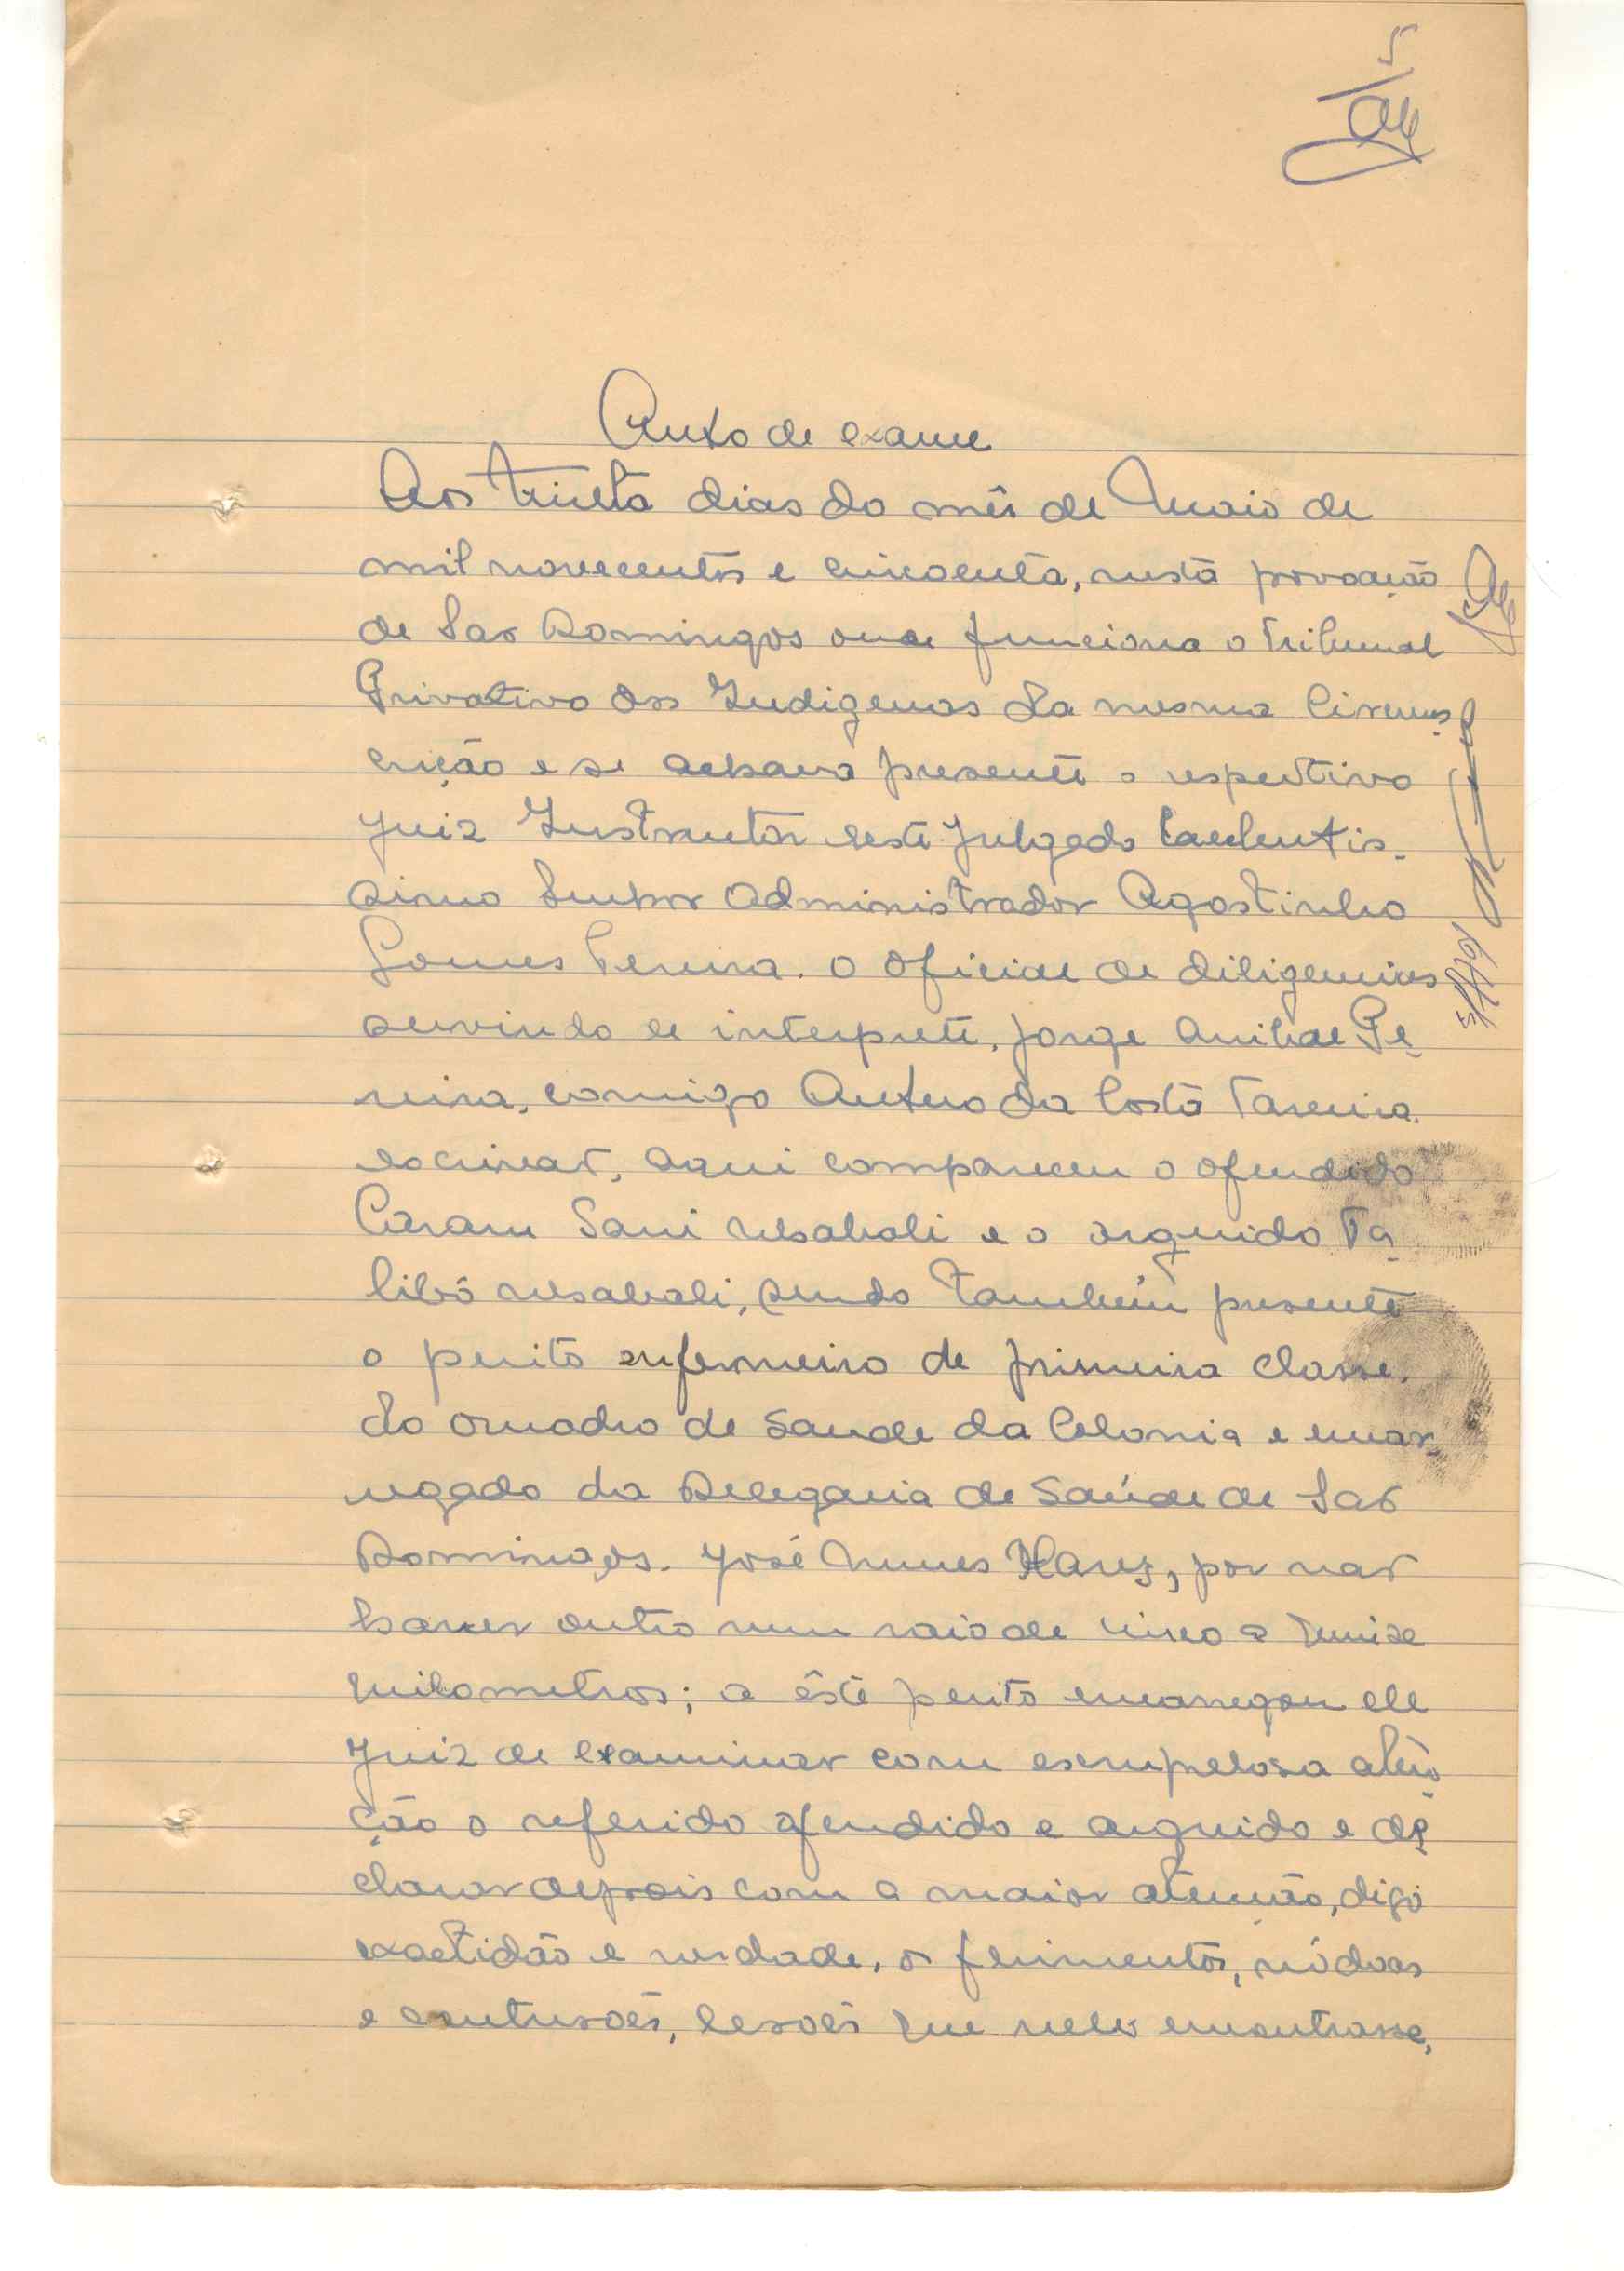 5
Auto de exame
Aos trinta dias do mês de Maio de
mil novecentos e cincoenta, nesta povoação
de Sao Domingos onde funciona o Tribunal
Privativo dos Indigenas da mesma Circuns-
crição e se achava presente o respectivo
Juiz Instrutor deste Julgado Excelentis-
simo Senhor Administrador Agostinho
Gomes Pereira. O Oficial de diligencias
servindo de interprete, Jorge Anibal Pe-
reira, comigo Antero da Costa Taveira
escrivão, aqui compareceu o ofendido
Caram Sani e o arguido Ta-
libó sendo também presente
o perito enfermeiro de primeira classe
do Quadro de Saude da Colonia e encar-
regado da Delegacia de Saúde de Sao
Domingos. José Nunes por nao
haver outro num raio de cinco a quinze
quilometros; a êste perito encarregou ele
Juiz de examinar com escrupelosa aten-
ção o referido ofendido e arguido e de-
clarar depois com a maior atenção, digo
exactidão e verdade, os ferimentos, nódoas
e contusões, lesões que neles encontrasse,